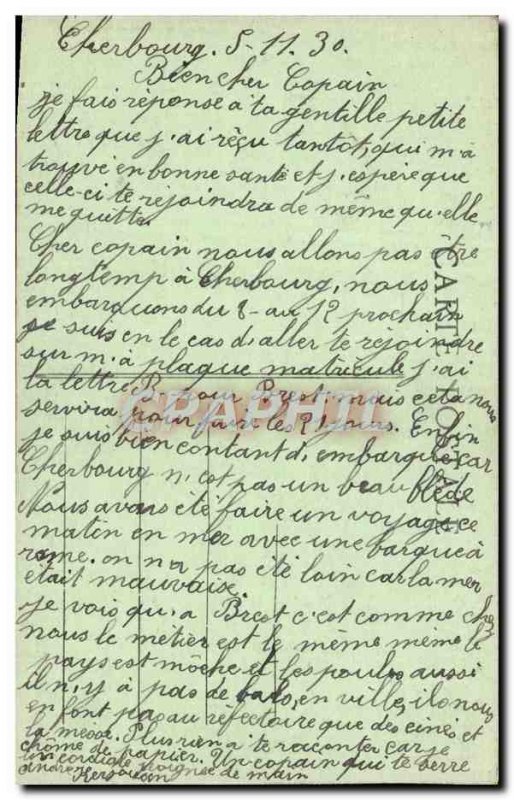 Cherbourg. 5-11.30.
Bien cher Copain
je fais réponse à ta gentille petite
lettre que j'ai réçu tantôt, qui m'a
trouvé en bonne santé et j'espère que
celle-ci te réjoindra de même qu'elle
me quitte.
Cher copain nous allons pas être
longtemp à Cherbourg, nous
embarquons du 8 au 12 prochain
je suis en le cas d'aller te réjoindre
sur m'a plaque matricule j'ai
la lettre B pour Brest mais cela nous
servira pour finir les 21 jours. Enfin
je suis bien contant d'embarqué car
Cherbourg n'est pas un beau blède
Nous avons été faire un voyage ce
matin en mer avec une barque à
rame. on n'a pas été loin car la mer
était mauvaise.
Je vois qu'a Brest c'est comme chez
nous le métier est le même même le
pays est moche et les poules aussi
il n'y à pas de bals, en ville, ils nous
en font pas au réfectoire que des cinés et
la messe. Plus rien à te raconter car je
chôme de papier. Un copain qui te serre
une cordiale poignée de main
André
CARTE POSTALE
CPAPHIL